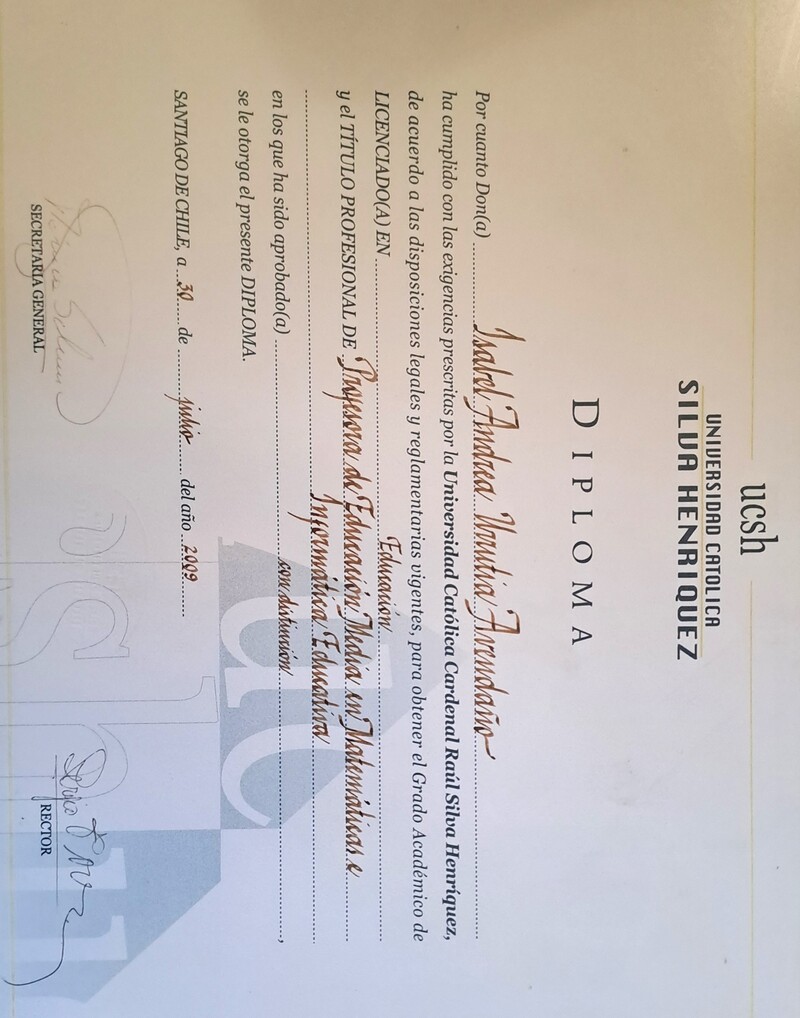 ucsh
UNIVERSIDAD CATOLICA
SILVA HENRIQUEZ
DIPLOMA
Por cuanto Don(a) Isabel Andrea Urrutia Avendaño
ha cumplido con las exigencias prescritas por la Universidad Católica Cardenal Raúl Silva Henríquez,
de acuerdo a las disposiciones legales y reglamentarias vigentes, para obtener el Grado Académico de
LICENCIADO(A) EN Educación
y el TÍTULO PROFESIONAL DE Profesora de Educación Media en Matemáticas e
Informática Educativa
en los que ha sido aprobado(a) con distinción,
se le otorga el presente DIPLOMA.
SANTIAGO DE CHILE, a 30 de julio del año 2009
uc
shu
Sergio
SECRETARIA GENERAL
RECTOR